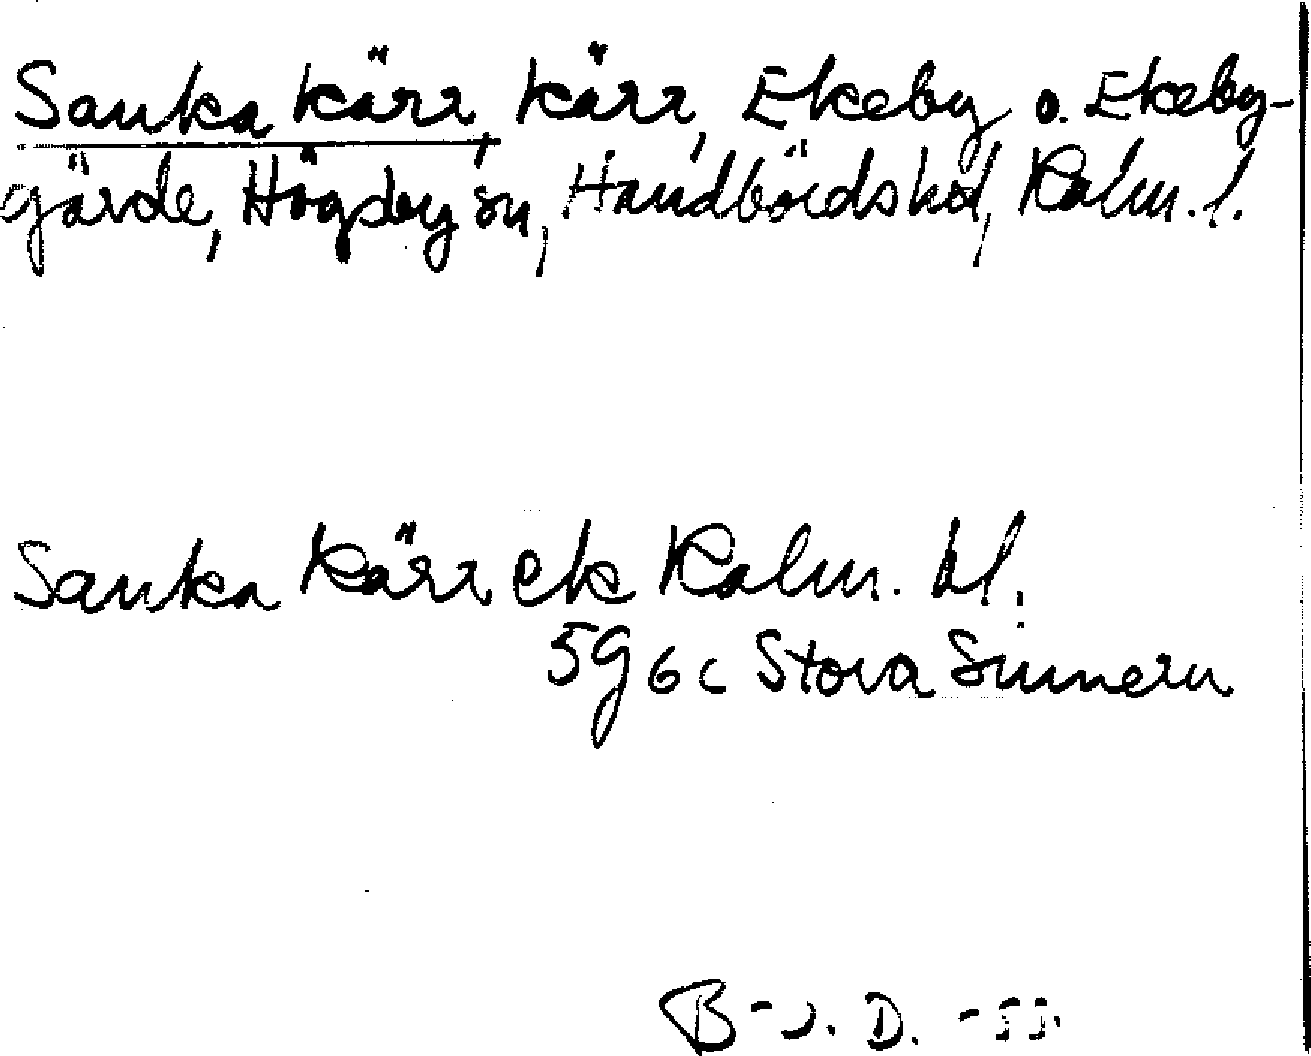 Sanka kärr, kärr, Ekeby o. Ekeby-
gärde, Högsby sn, Handbördshd, Kalm. l.
Sanka kärr ek Kalm. bl.
5G 6c Stora Sinnern
B-J. D. -55.